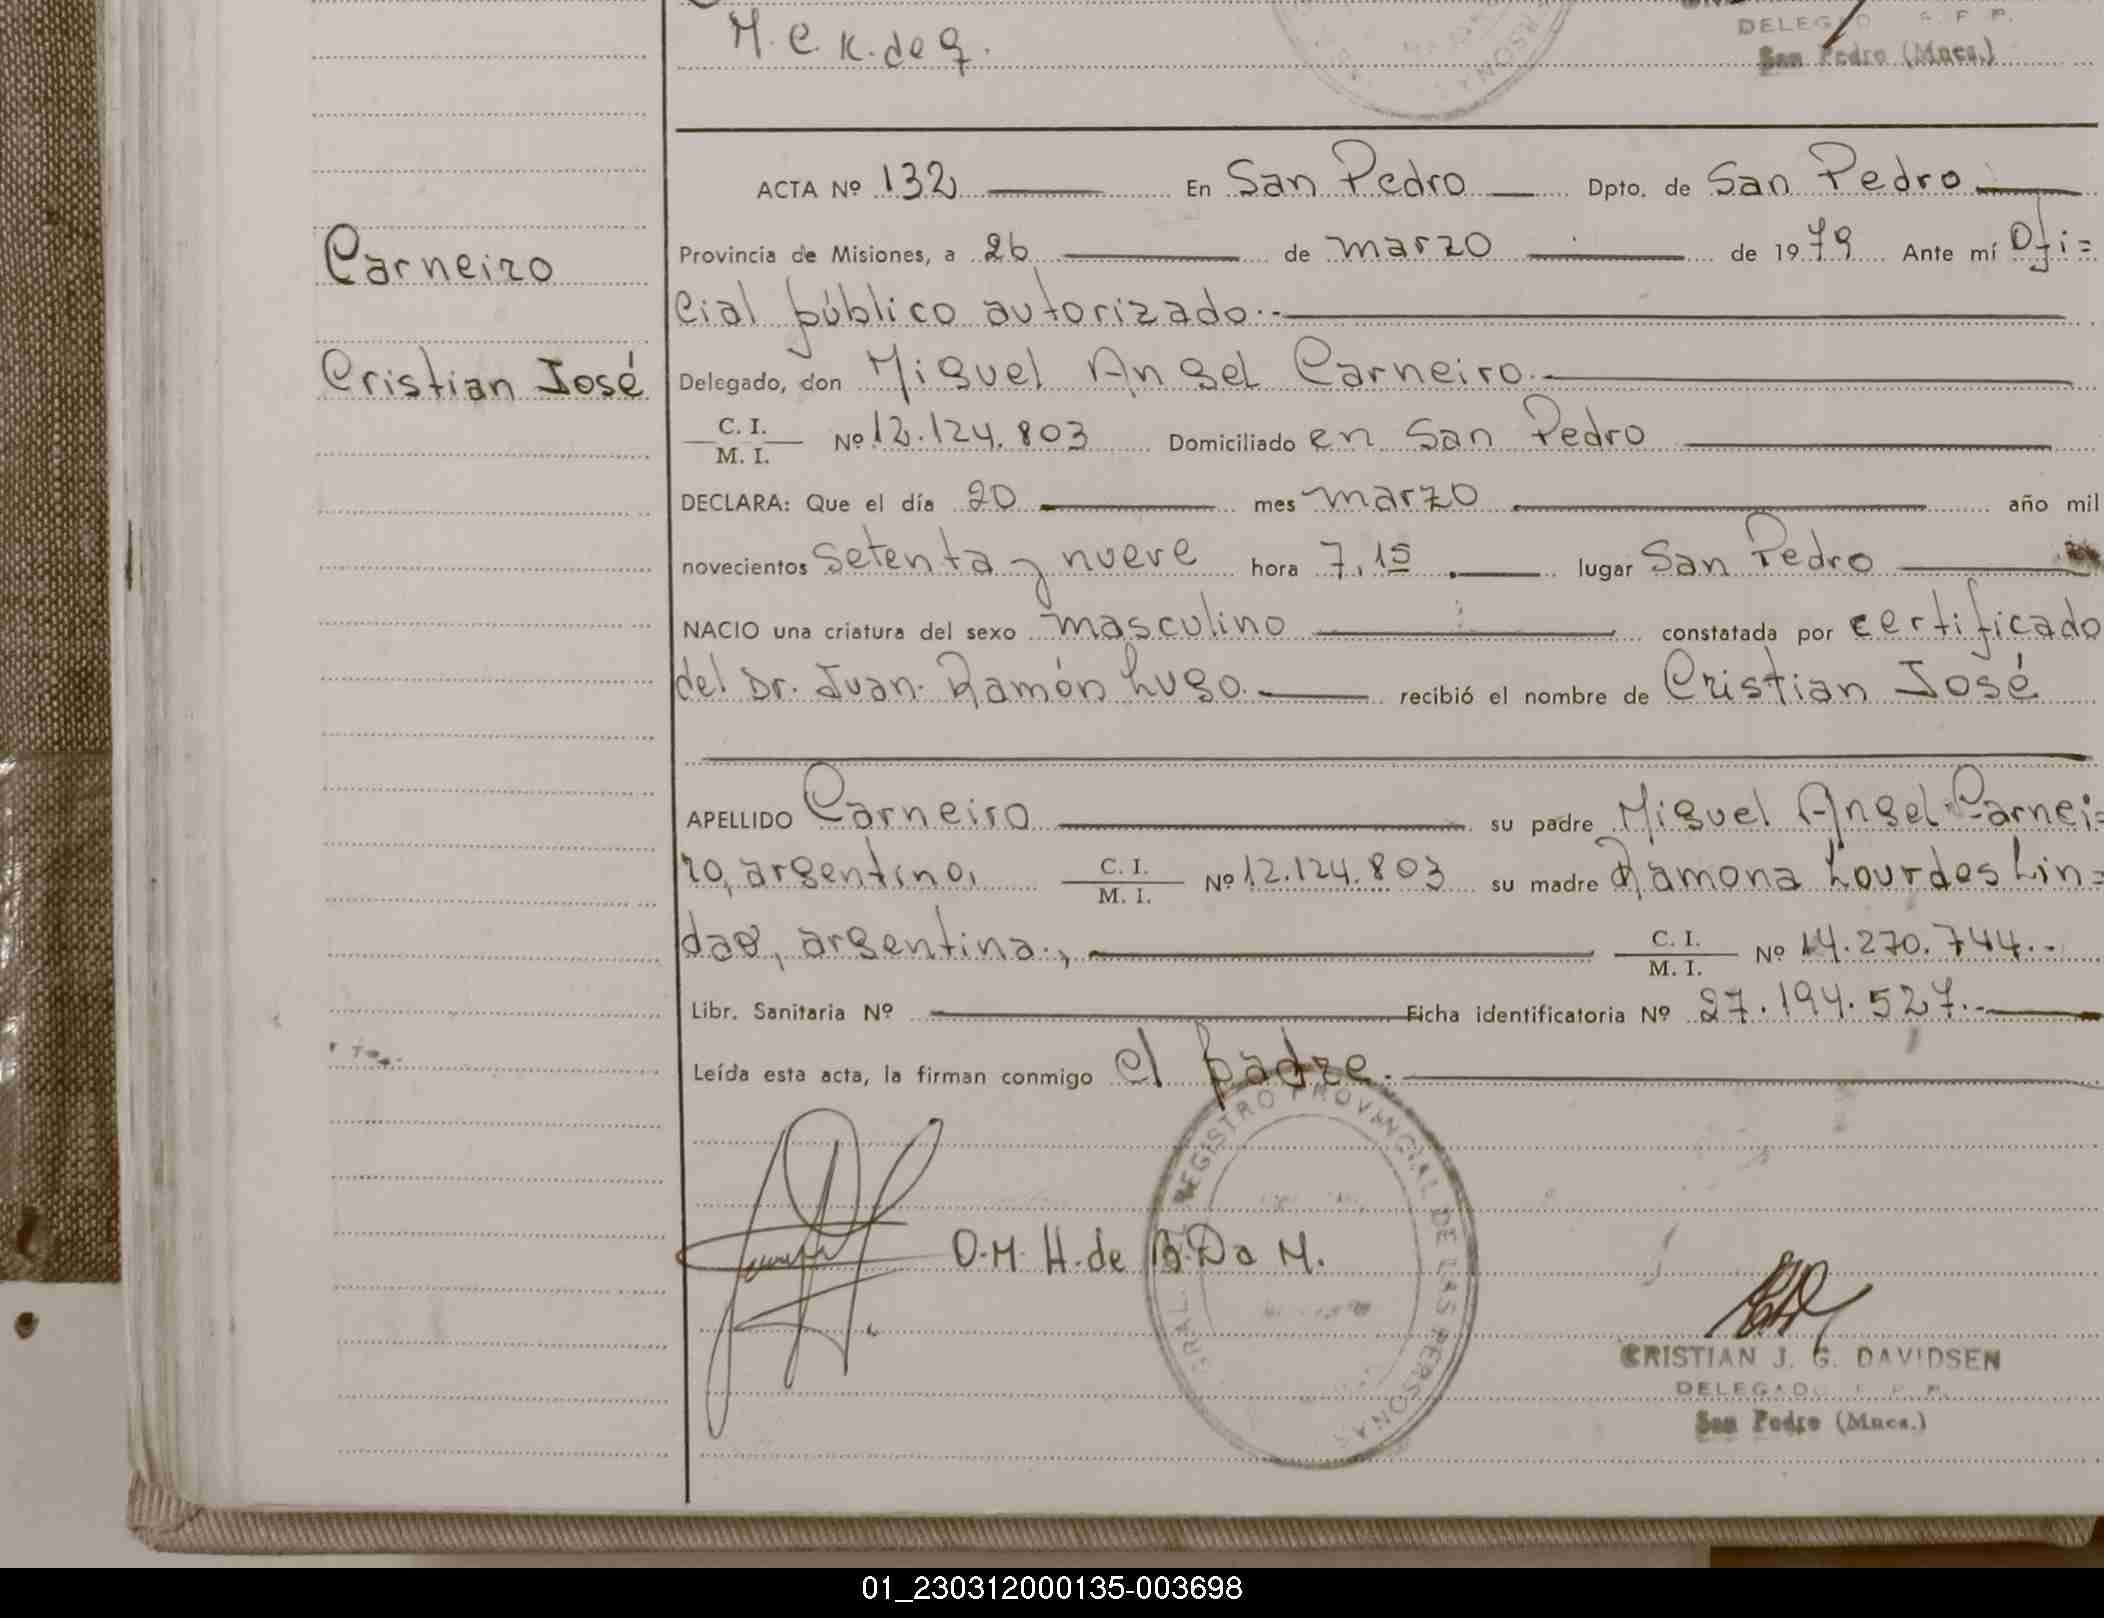 M.C.K. de q.
DELEGADO
San Pedro (Mnes.)
ACTA Nº 132 En San Pedro Dpto. de San Pedro
Provincia de Misiones, a 26 de marzo de 1979 Ante mí Ofi=
cial público autorizado.-
Carneiro
Cristian José
Delegado, don Miguel Angel Carneiro.-
C. I.
M. I.
Nº 12.124.803 Domiciliado en San Pedro
DECLARA: Que el día 20 mes marzo año mil
novecientos setenta y nueve hora 7,15 lugar San Pedro
NACIO una criatura del sexo masculino constatada por certificado
del Dr. Juan Ramón Lugo.- recibió el nombre de Cristian José
APELLIDO Carneiro su padre Miguel Angel Carnei=
ro, argentino, C. I. M. I. Nº 12.124.803 su madre Ramona Lourdes Lin=
dao, argentina., C. I. M. I. Nº 14.270.744.-
Libr. Sanitaria Nº Ficha identificatoria Nº 27.194.527.-
Leída esta acta, la firman conmigo el padre.-
GRAL. REGISTRO PROVINCIAL DE LAS PERSONAS
O.M.H. de B. Da M.
CRISTIAN J. G. DAVIDSEN
DELEGADO R. P. P.
San Pedro (Mnes.)
01_230312000135-003698